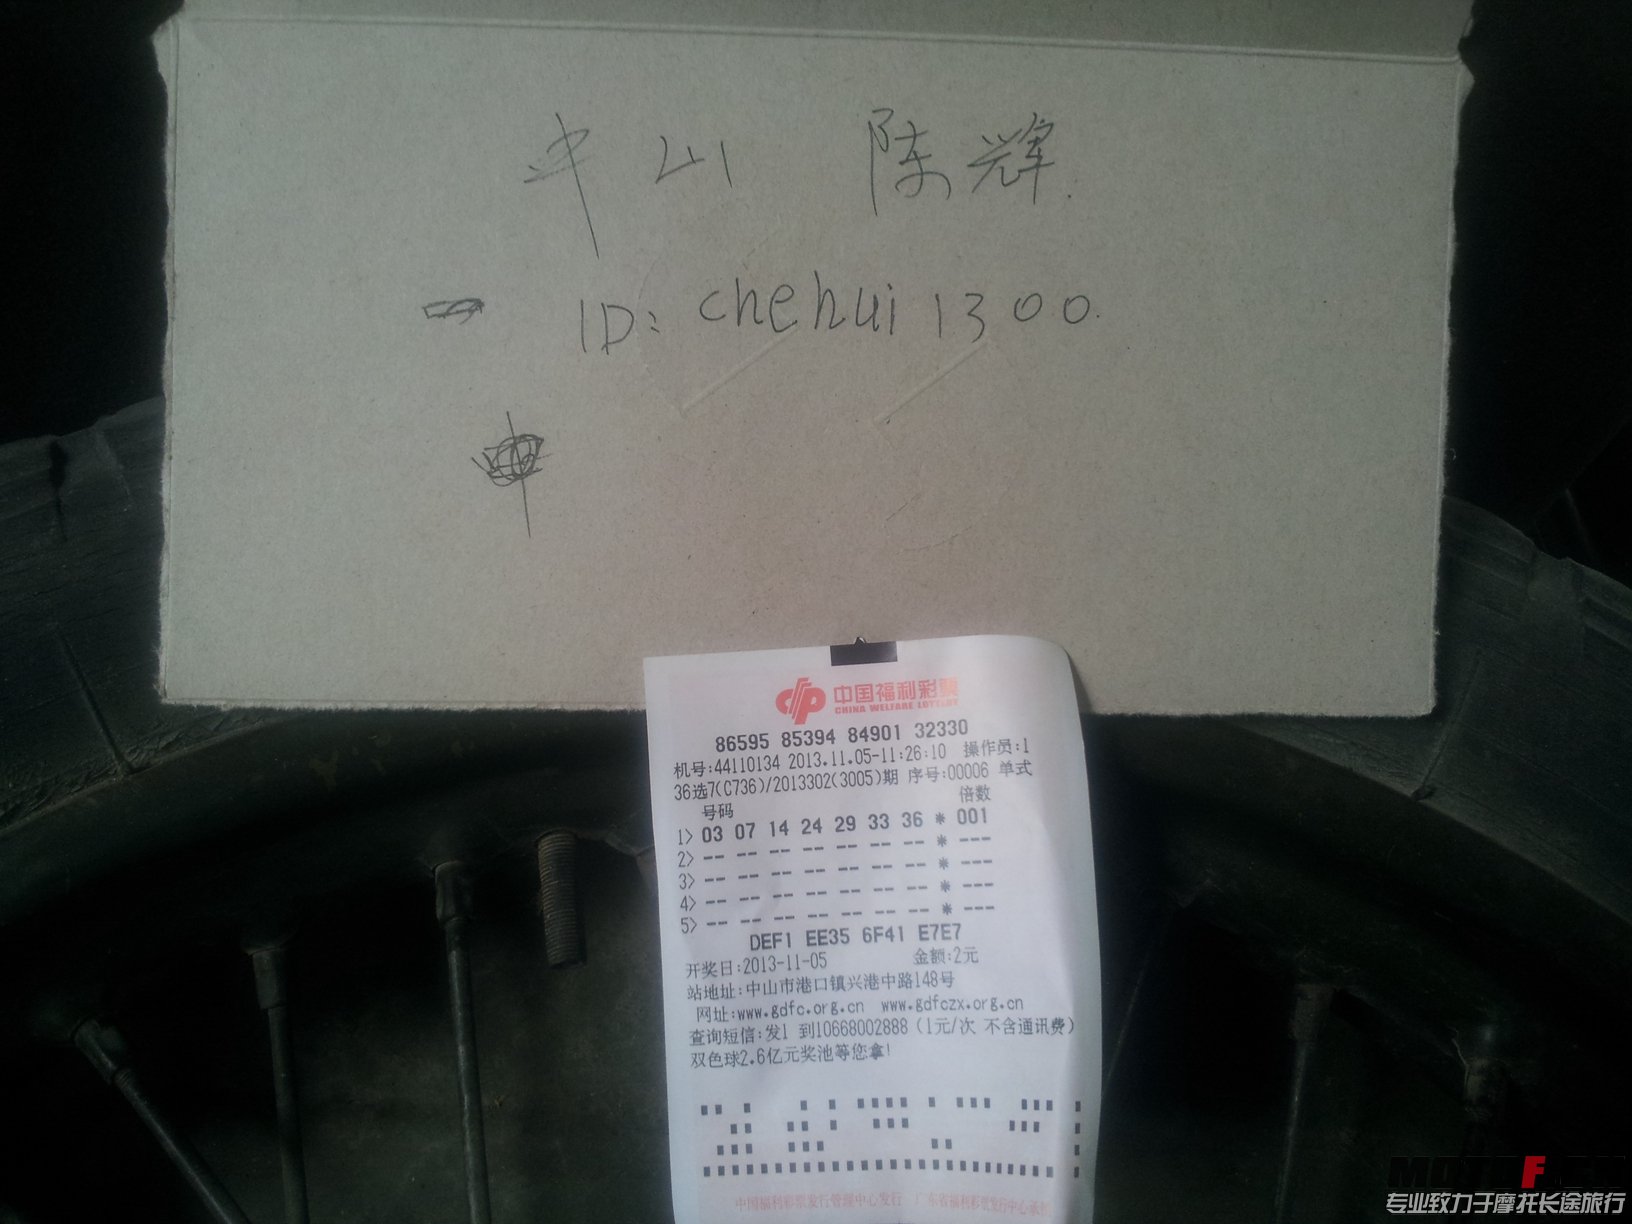 中山 陈辉.
ID: chehui1300.
中国福利彩票
CHINA WELFARE LOTTERY
86595 85394 84901 32330
机号:44110134 2013.11.05-11:26:10 操作员:1
36选7(C736)/2013302(3005)期 序号:00006 单式
号码 倍数
1> 03 07 14 24 29 33 36 * 001
2> -- -- -- -- -- -- -- * ---
3> -- -- -- -- -- -- -- * ---
4> -- -- -- -- -- -- -- * ---
5> -- -- -- -- -- -- -- * ---
DEF1 EE35 6F41 E7E7
开奖日:2013-11-05 金额:2元
站地址:中山市港口镇兴港中路148号
网址:www.gdfc.org.cn www.gdfczx.org.cn
查询短信:发1 到10668002888 (1元/次 不含通讯费)
双色球2.6亿元奖池等您拿!
中国福利彩票发行管理中心发行 广东省福利彩票发行中心承销
MOTOF.CN
专业致力于摩托长途旅行